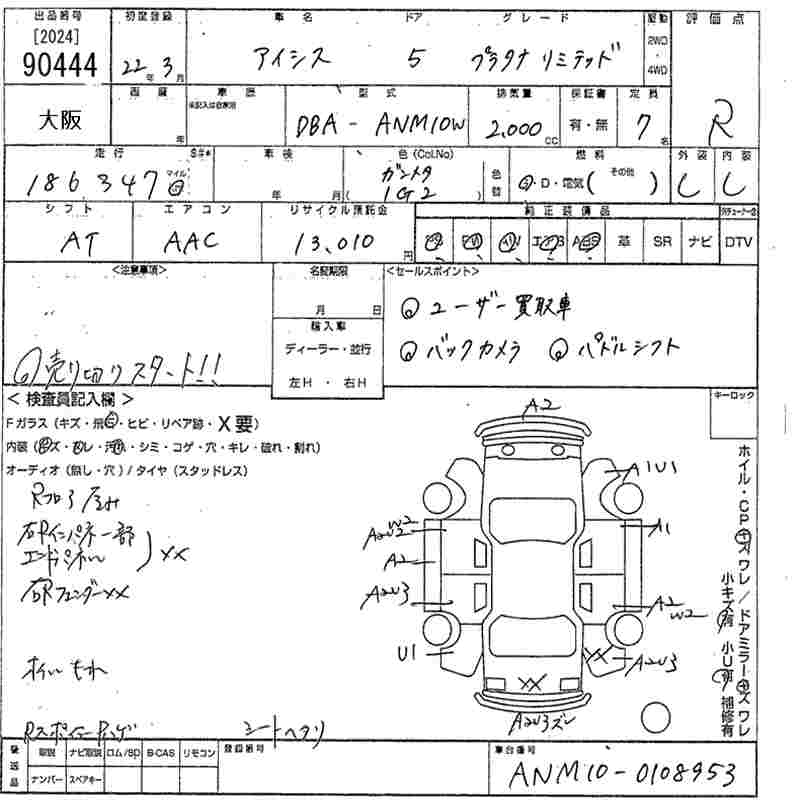 出品番号 初度登録 車名 ドア グレード 駆動 評価点
[2024]
90444 22年 3月 アイシス 5 プラタナ リミテッド 2WD・4WD R
大阪 車歴 型式 排気量 保証書 定員
未記入は自家用
年 DBA-ANM10W 2,000 CC 有・無 7名
走行 S#* 車検 色(Col.No) 燃料 (その他) 外装 内装
186347 マイル 年 月 ガンメタ ( 1G2 ) 色替 G・D・電気( ) C C
シフト エアコン リサイクル預託金 純正装備品
AT AAC 13,010円 革 SR ナビ DTV
<注意事項> 名変期限 <セールスポイント>
月 日 ユーザー買取車
輸入車
ディーラー・並行 バックカメラ パドルシフト
売り切りスタート!! 左H・右H
<検査員記入欄> キーロック
Fガラス(キズ・飛石・ヒビ・リペア跡・X要)
内装(キズ・汚れ・シミ・コゲ・穴・キレ・破れ・割れ)
オーディオ(無し・穴)/タイヤ(スタッドレス)
Rフロア
右Rインパネ一部
エンドパネル XX
右RフェンダーXX
シートヘタリ
A2
A1U1
W2
A2U2 A1
A2
A2U3 A2
W2
U1 XX A2U3
XX
A2U3ズレ
ホイル・CPキズワレ/ドアミラーキズワレ
小キズ有 小U有 補修有
後送品 取説 ナビ取説 ロム/SD B-CAS リモコン 登録番号 車台番号
ナンバー スペアキー ANM10-0108953